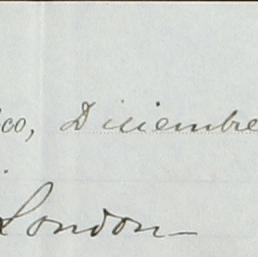 co, Diciembre
London